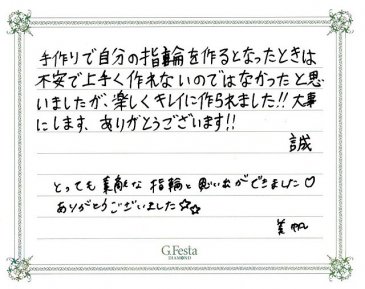 手作りで自分の指輪を作るとなったときは
不安で上手く作れないのではなかったと思
いましたが、楽しくキレイに作られました!!大事
にします、ありがとうございます!!
誠
とっても素敵な指輪と思い出ができました♡
ありがとうございました☆☆
美帆
G.Festa
DIAMOND